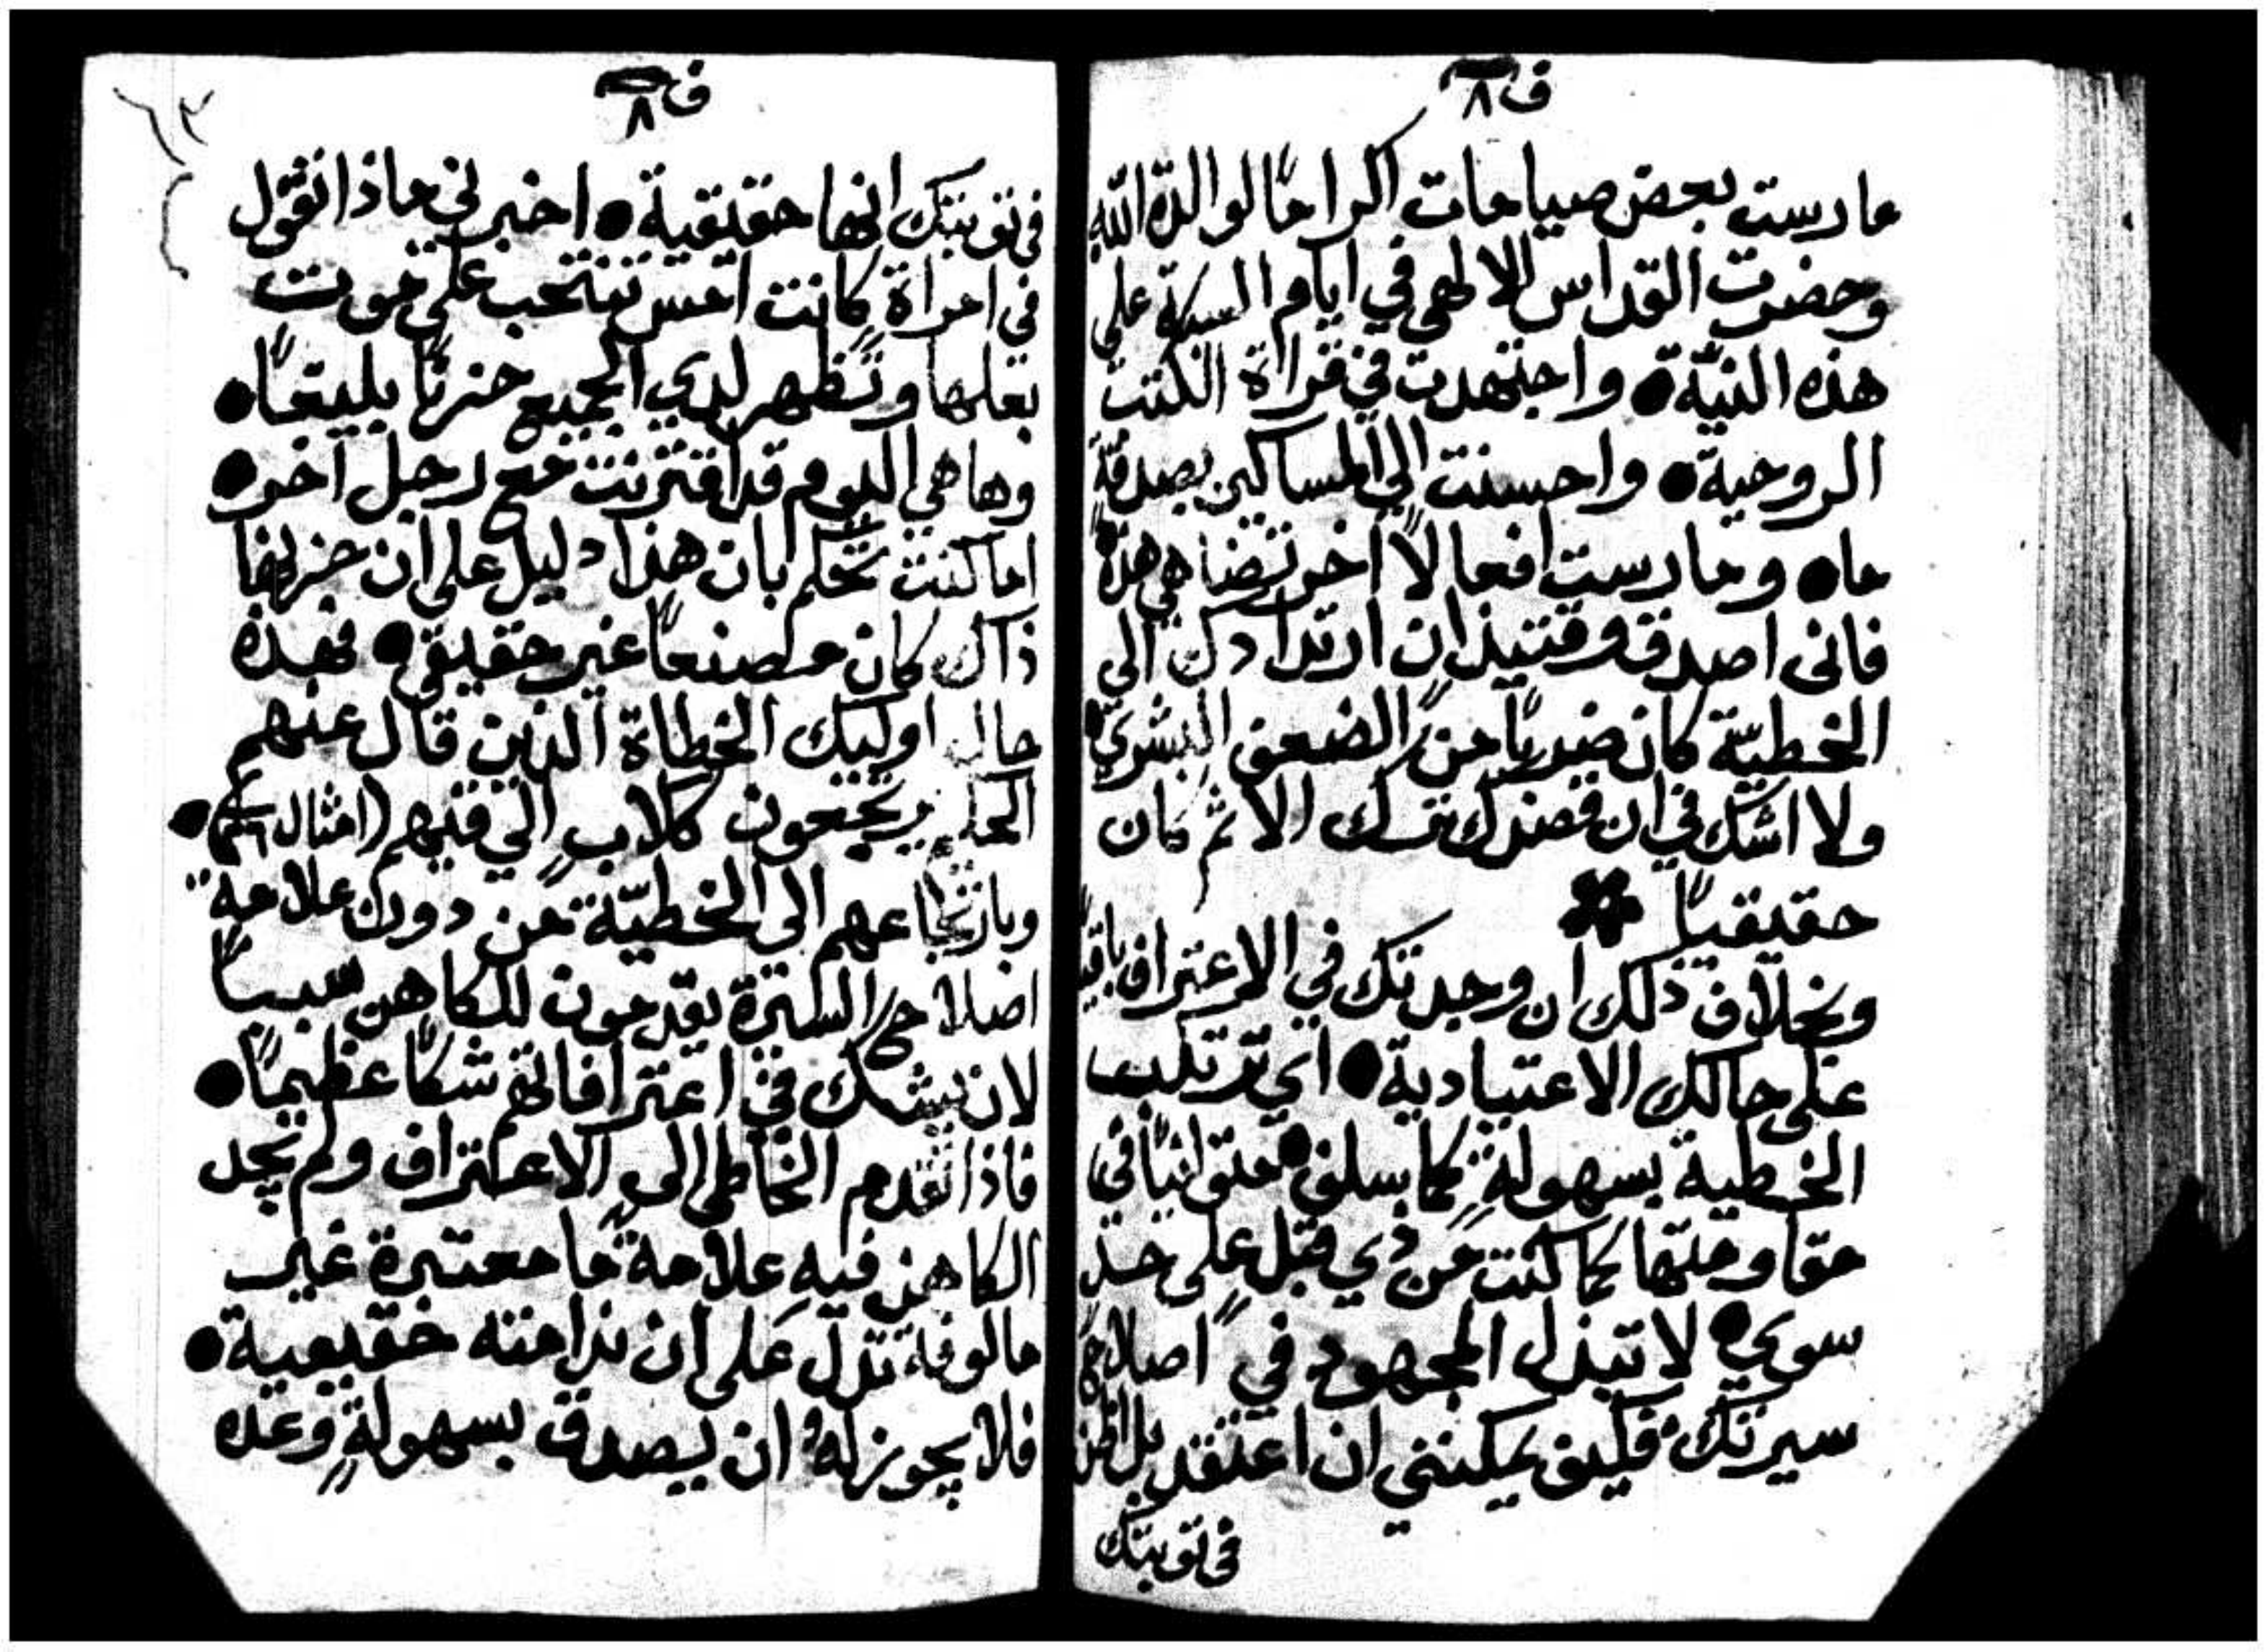 ف ٨
مارست بعض صيامات اكرامًا لوالدة الله
وحضرت القداس الالهي في ايام السبة على
هذه النيّة ● واجتهدت في قراة الكتب
الروحية ● واحسنت الي المساكين بصدقة
ما ● ومارست افعالاً اخر تضاهي هذه
فاني اصدق وقتيذ ان ارتدادك الى
الخطيّة كان ضربًا من الضعف البشري ●
ولا اشك في ان قصدك بترك الاثم كان
حقيقيًا
وبخلاف ذلك ان وجدتك في الاعتراف باقيًا
على حالك الاعتيادية ● اي ترتكب
الخطية بسهولةٍ كما سلف ● متوانيًا في
مقاومتها كما كنت من ذي قبل على حدٍ
سوي ● لا تبذل المجهود في اصلاح
سيرتك فكيف يمكنني ان اعتقد بل اظن
في توبتك
ف ٨
في توبتك انها حقيقية ● اخبرني ماذا تقول
في امراة كانت امس تنتحب على موت
بعلها وتظهر لدي الجميع حزنًا بليغًا ●
وها هي اليوم قد اقترنت مع رجل آخر ●
اما كنت تحكم بان هذا دليل على ان حزنها
ذاك كان مصنعاً غير حقيقي ● فهذه
حال اوليك الخطاة الذين قال عنهم
الحكيم يرجعون كلابٍ الي قيهم (امثال
وبارتجاعهم الي الخطيّة من دون علامة
اصلاح السيرة يقدمون للكاهن سببًا
لان يشك في اعترافاتهم شكًا عظيمًا ●
فاذا تقدم الخاطي الي الاعتراف ولم يجد
الكاهن فيه علامةً ما معتبرة غير
مالوفة تدل على ان ندامته حقيقية ●
فلا يجوز له ان يصدق بسهولةٍ وعده